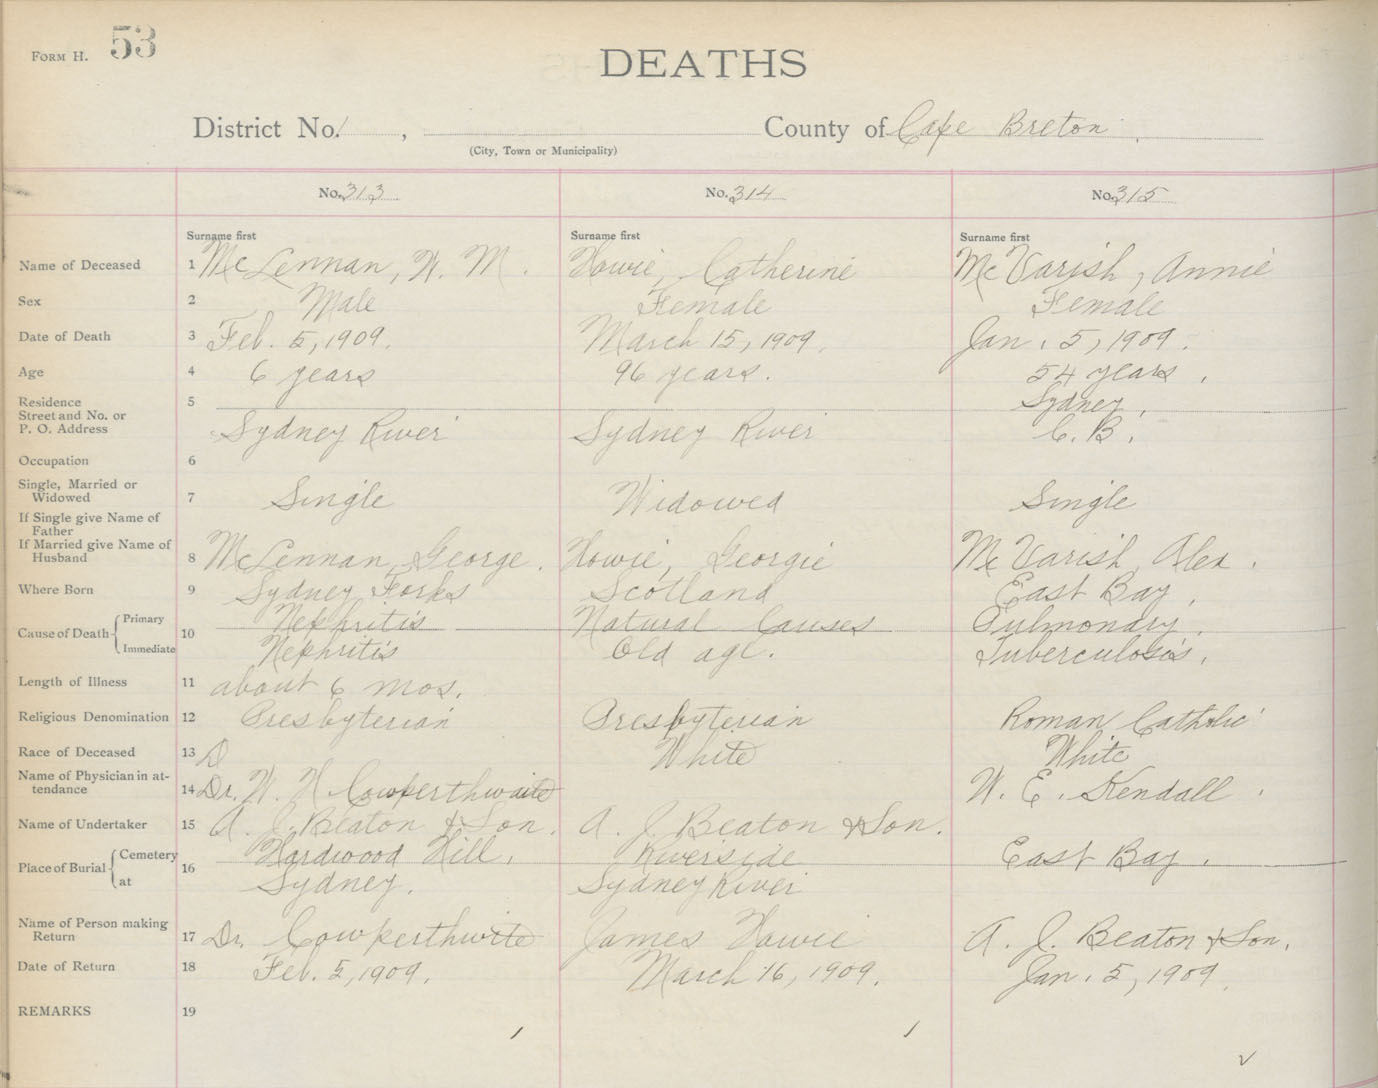 FORM H. 53
DEATHS
District No. 1, County of Cape Breton
(City, Town or Municipality)
No. 313 No. 314 No. 315
Surname first Surname first Surname first
Name of Deceased 1 McLennan, W. M. Howie, Catherine McVarish, Annie
Sex 2 Male Female Female
Date of Death 3 Feb. 5, 1909. March 15, 1909. Jan. 5, 1909.
Age 4 6 years 96 years. 54 years.
Residence 5 Sydney,
Street and No. or
P. O. Address Sydney River Sydney River C. B.
Occupation 6
Single, Married or
Widowed 7 Single Widowed Single
If Single give Name of
Father
If Married give Name of
Husband 8 McLennan, George. Howie, Georgie McVarish, Alex.
Where Born 9 Sydney Forks Scotland East Bay,
Cause of Death Primary 10 Nephritis Natural Causes Pulmonary.
Immediate Nephritis Old age. Tuberculosis.
Length of Illness 11 about 6 mos.
Religious Denomination 12 Presbyterian Presbyterian Roman Catholic
Race of Deceased 13 White White
Name of Physician in at-
tendance 14 Dr. W. H Cowperthwaite W. E. Kendall.
Name of Undertaker 15 A. J. Beaton & Son. A. J. Beaton & Son.
Place of Burial Cemetery 16 Hardwood Hill. Riverside East Bay.
at Sydney. Sydney River
Name of Person making
Return 17 Dr. Cowperthwite James Howie A. J. Beaton & Son.
Date of Return 18 Feb. 5, 1909. March 16, 1909. Jan. 5, 1909.
REMARKS 19